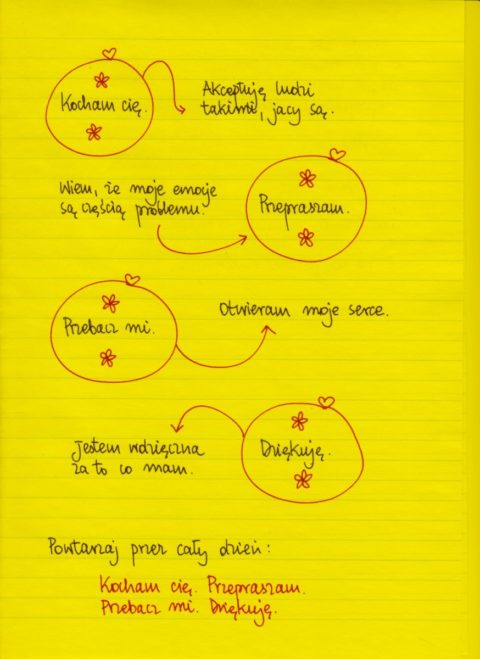 Kocham cię.
Akceptuję ludzi
takimi, jacy są.
Wiem, że moje emocje
są częścią problemu.
Przepraszam.
Przebacz mi.
Otwieram moje serce.
Dziękuję.
Jestem wdzięczna
za to co mam.
Powtarzaj przez cały dzień:
Kocham cię. Przepraszam.
Przebacz mi. Dziękuję.